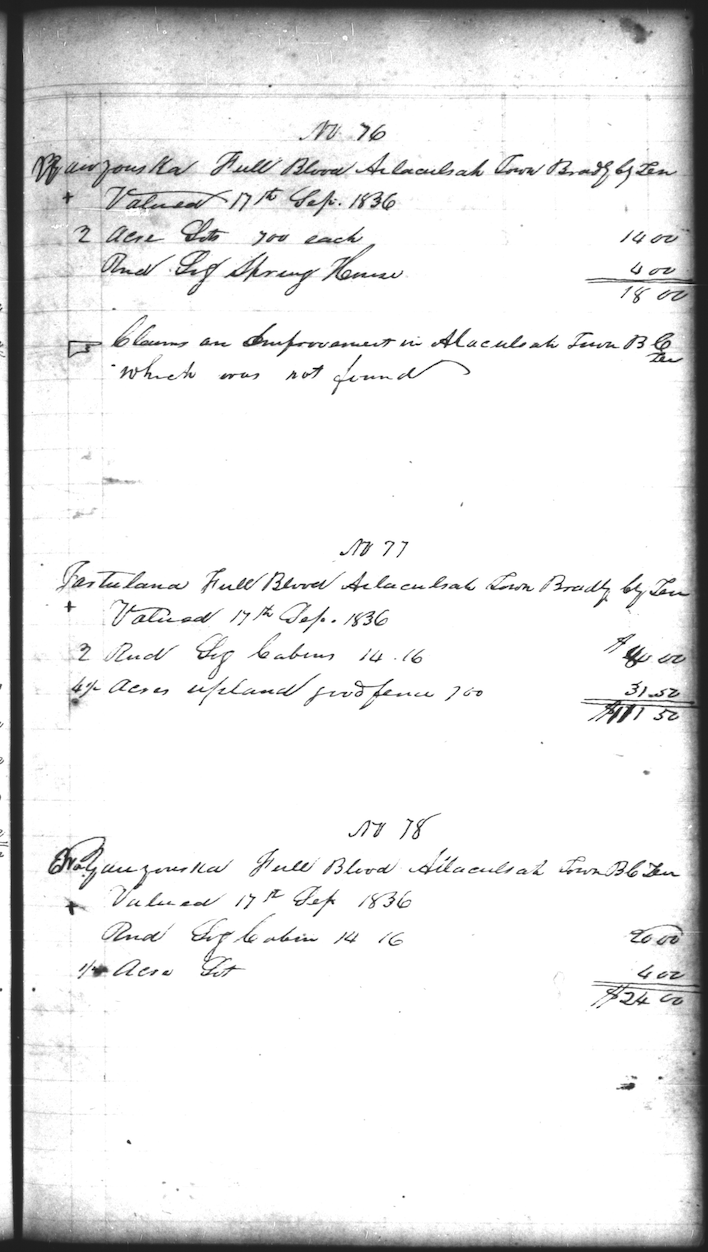 No 76
Full Blood Ailaculsah Town Bradly Cty Ten
+ Valued 17th Sep. 1836
2 Acre Lots 700 each 14 00
Rnd Log Spring House 4 00
18 00
Claims an Improovament in Alaculsah Town B C Ten
which was not found
No 77
Tastulana Full Blood Ailaculsah Town Bradly Cty Ten
+ Valued 17th Sep. 1836
2 Rnd Log Cabins 14.16 $ 00
4½ Acres upland good fence 700 31.50
$111 50
No 78
Full Blood Ailaculsah Town B C Ten
+ Valued 17th Sep 1836
Rnd Log Cabin 14 16 20 00
Acre Lot 4 00
$24 00